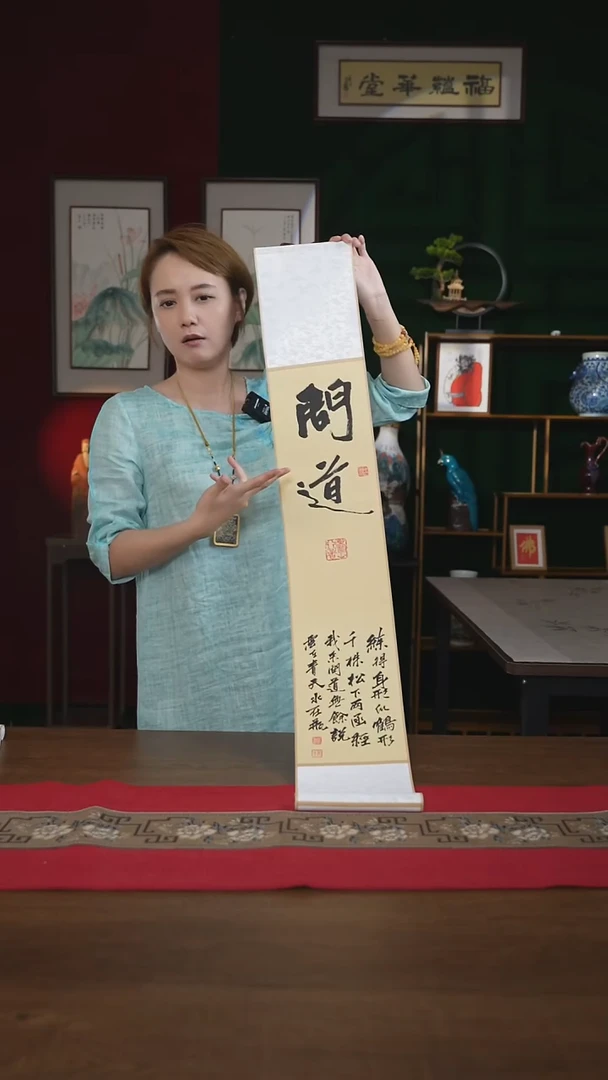 福華堂
問道
練得身形似鶴形
千株松下兩函經
我来問道無餘說
雲在青天水在瓶